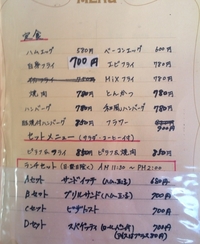 MENU
定食
ハムエッグ 580円 ベーコンエッグ 600円
白身フライ 700円 エビフライ 780円
MIXフライ 780円
焼肉 780円 とんかつ 780円
ハンバーグ 780円 和風ハンバーグ 780円
ハンバーグ フラワー 900円
セットメニュー (サラダ・コーヒー付)
ピラフ&フライ 850円 ピラフ&焼肉 850円
ランチセット (日曜日除く) AM 11:30 ~ PM 2:00
Aセット サンドイッチ 650円
Bセット グリルサンド 700円
Cセット ピザトースト 700円
Dセット スパゲティ 700円